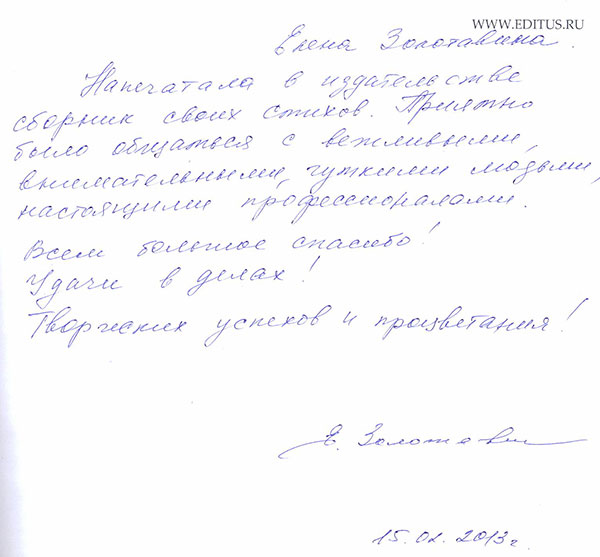 WWW.EDITUS.RU
Елена Золотавина.
Напечатала в издательстве
сборник своих стихов. Приятно
было общаться с вежливыми,
внимательными, чуткими людьми,
настоящими профессионалами.
Всем большое спасибо!
Удачи в делах!
Творческих успехов и процветания!
Е. Золотавин
15.02.2013 г.